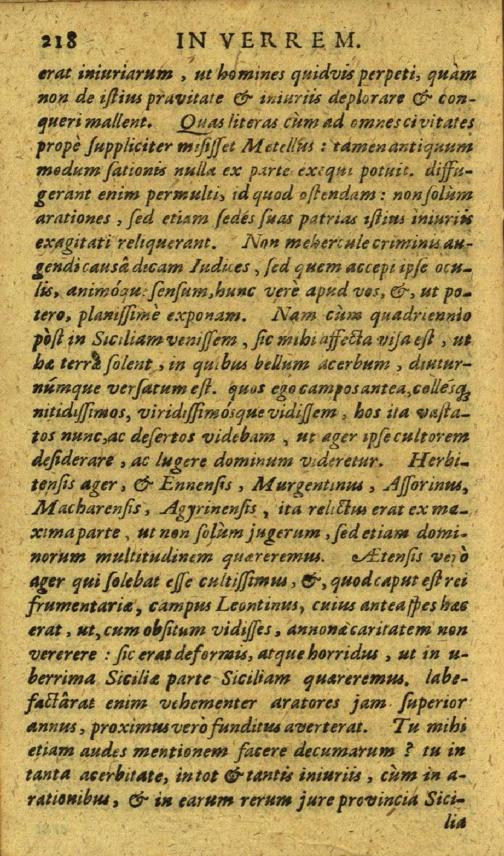 218 IN VERREM.
erat iniuriarum, ut homines quidvis perpeti, quàm
non de istius pravitate & iniuriis deplorare & con-
queri mallent. Quas literas cùm ad omnes civitates
propè suppliciter misisset Metellus: tamen antiquum
modum sationis nulla ex parte exequi potuit. diffu-
gerant enim permulti, id quod ostendam: non solùm
arationes, sed etiam sedes suas patrias istius iniuriis
exagitati reliquerant. Non mehercule criminis au-
gendi causâ dicam Iudices, sed quem accepi ipse ocu-
lis, animóque sensum, hunc verè apud vos, &, ut po-
tero, planissimè exponam. Nam cùm quadriennio
pòst in Siciliam venissem, sic mihi affecta visa est, ut
hæ terræ solent, in quibus bellum acerbum, diutur-
númque versatum est. quos ego campos antea, collésq;
nitidissimos, viridissimósque vidissem, hos ita vasta-
tos nunc, ac desertos videbam, ut ager ipse cultorem
desiderare, ac lugere dominum videretur. Herbi-
tensis ager, & Ennensis, Murgentinus, Assorinus,
Macharensis, Agyrinensis, ita relictus erat ex ma-
xima parte, ut non solùm jugerum, sed etiam domi-
norum multitudinem quæreremus. Ætensis verò
ager qui solebat esse cultissimus, &, quod caput est rei
frumentariæ, campus Leontinus, cuius antea spes hæc
erat, ut, cum obsitum vidisses, annonæ caritatem non
vererere: sic erat deformis, atque horridus, ut in u-
berrima Siciliæ parte Siciliam quæreremus. labe-
factârat enim vehementer aratores jam superior
annus, proximus verò funditus averterat. Tu mihi
etiam audes mentionem facere decumarum? tu in
tanta acerbitate, in tot & tantis iniuriis, cùm in a-
rationibus, & in earum rerum jure provincia Sici-
lia